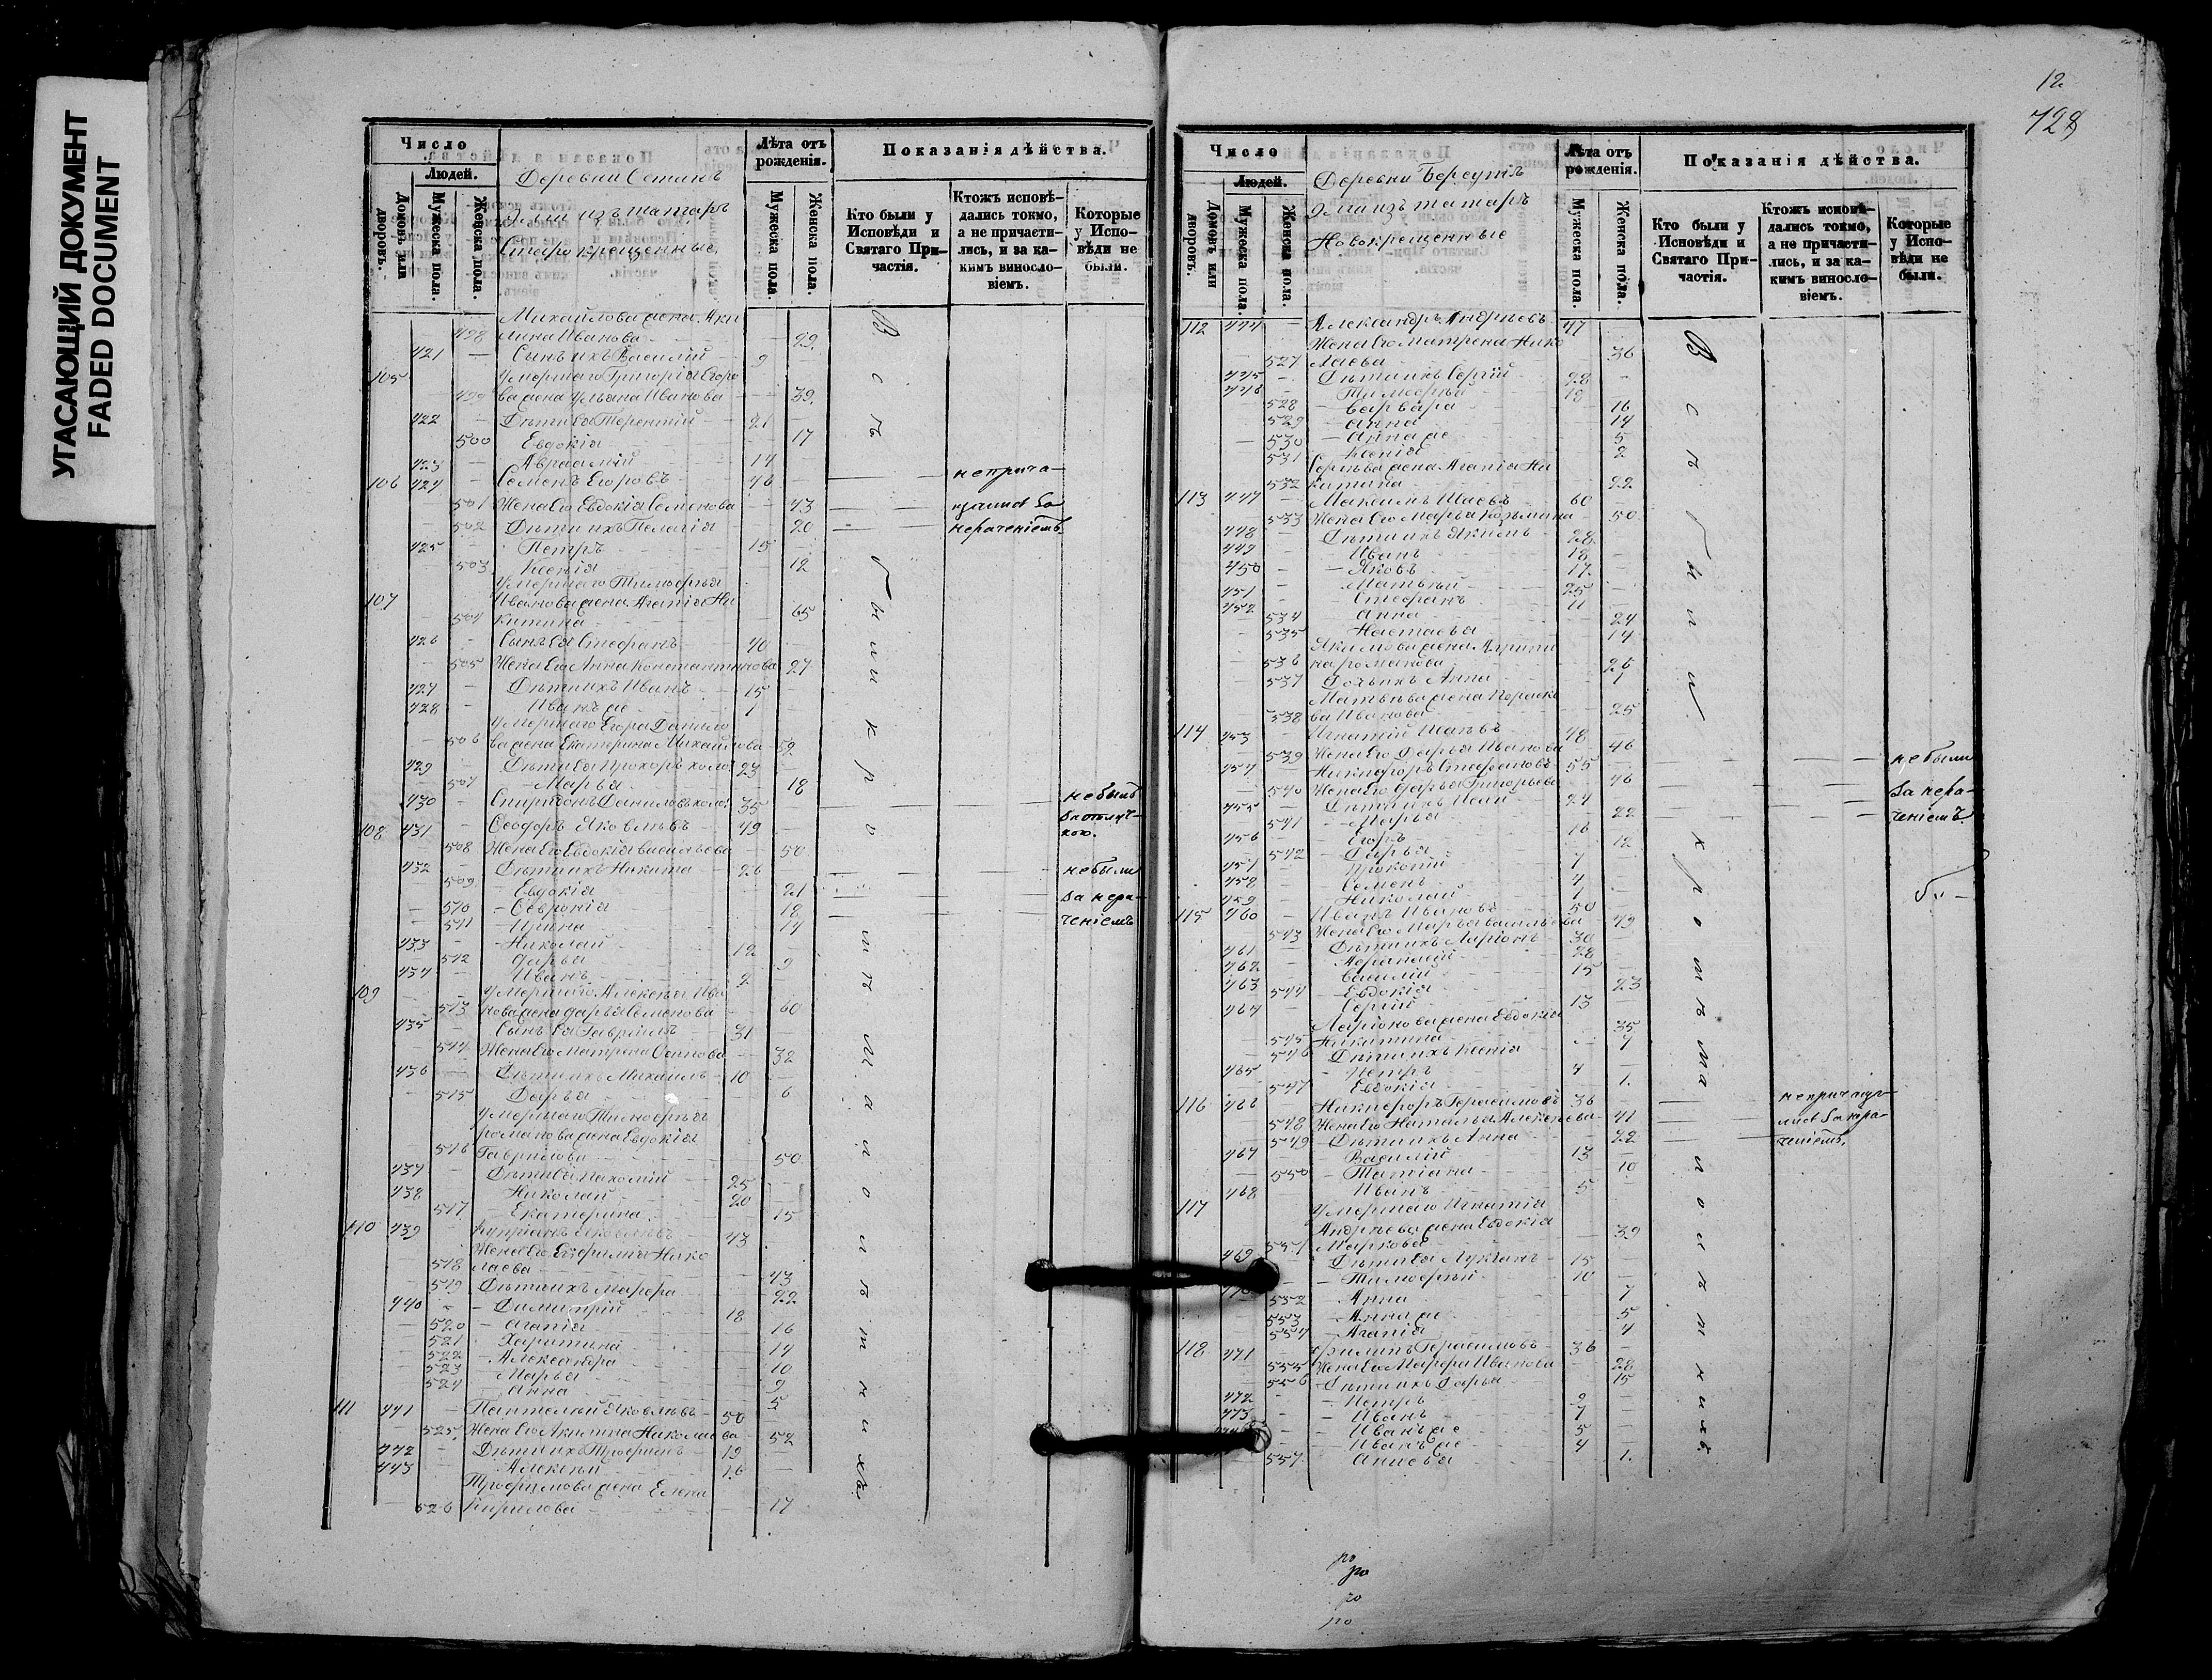 УГАСАЮЩИЙ ДОКУМЕНТ
FADED DOCUMENT
Число
Людей.
Домовъ или дворовъ.
Мужеска пола.
Женска пола.
Деревни
изъ татаръ
Старокрещенные.
Лѣта отъ рожденія.
Мужеска пола.
Женска пола.
Показанія дѣйства.
Кто были у Исповѣди и Святаго Причастія.
Ктожъ исповѣдались токмо, а не причастились, и за какимъ винословіемъ.
Которые у Исповѣди не были.
Михайлова жена Аки
498 лина Иванова 29
421 Сынъ ихъ Василій 9
105 Умершаго Григорія Егоро
499 ва жена Ульяна Иванова 39
422 Дѣти ея Терентій 21
500 Евдокія 17
423 Авраамій 14
106 424 Семенъ Егоровъ 46
501 Жена Его Евдокія Семенова 43
502 Дѣти ихъ Пелагія 20
425 Петръ 15
503 Ксенія 12
Умершаго Тимофея
107 Иванова жена Агапія Ни
504 китина 65
426 Сынъ Ея Стефанъ 40
505 Жена Его Анна Константинова 27
427 Дѣти ихъ Иванъ 15
428 Иванъ же 1
Умершаго Егора Данило
506 ва жена Екатерина Михайлова 59
429 Дѣти Ея Прохоръ холо: 23
507 Марья 18
430 Спиридонъ Даниловъ холо: 35
108 431 Феодоръ Яковлевъ 49
508 Жена Его Евдокія Васильева 50
432 Дѣти ихъ Никита 26
509 Евдокія 21
510 Февронія 18
511 Ирина 14
433 Николай 12
512 Дарья 9
434 Иванъ 2
109 Умершаго Алексѣя Ива
513 нова жена Дарья Семенова 60
435 Сынъ Ея Гавріилъ 31
514 Жена Его Матрена Осипова 32
436 Дѣти ихъ Михаилъ 10
515 Дарья 6
Умершаго Тимофея
Романова жена Евдокія
516 Гаврилова 50
437 Дѣти Ея Пахомій 25
438 Николай 20
517 Екатерина 15
110 439 Купріянъ Яковлевъ 43
Жена Его Евфимія Нико
518 лаева 43
519 Дѣти ихъ Марфа 22
440 Димитрій 18
520 Агапія 16
521 Харитина 14
522 Александра 10
523 Марья 9
524 Анна 5
111 441 Пантелей Яковлевъ 50
525 Жена Его Акилина Николаева 52
442 Дѣти ихъ Трофимъ 19
443 Алексѣй 16
Трофимова жена Елена
526 Кирилова 17
Всѣ были и кромѣ малолѣтнихъ.
не прича-
щались за
нераченіемъ
не былъ
за отлуч-
кою.
не были
за нера-
ченіемъ
12
728
Число
Людей.
Домовъ или дворовъ.
Мужеска пола.
Женска пола.
Деревни Берсутъ
изъ татаръ
Новокрещенные
Лѣта отъ рожденія.
Мужеска пола.
Женска пола.
Показанія дѣйства.
Кто были у Исповѣди и Святаго Причастія.
Ктожъ исповѣдались токмо, а не причастились, и за какимъ винословіемъ.
Которые у Исповѣди не были.
112 444 Александръ Андреевъ 47
Жена Его Матрена Нико
527 лаева 36
445 Дѣти ихъ Сергій 28
446 Тимофей 18
528 Варвара 16
529 Анна 14
530 Анна же 5
531 Ксенія 2
Сергѣева жена Агапія Ни
532 китина 22
113 447 Максимъ 60
533 Жена Его Марья Козьмина 50
448 Дѣти ихъ Якимъ 28
449 Иванъ 18
450 Яковъ 17
451 Матвѣй 25
452 Стефанъ 11
534 Анна 24
535 Настасья 14
Якимова жена
536 на Романова 26
537 Дочь ихъ Анна 1
Матвѣева жена Параске
538 ва Иванова 25
114 453 Игнатій 48
539 Жена Его Дарья Иванова 46
454 Никифоръ Стефановъ 55
540 Жена Его Дарья Григорьева 46
455 Дѣти ихъ 24
541 Марья 22
456 Егоръ 16
542 Дарья 12
457 Прокопій 7
458 Семенъ 4
459 Николай 1
115 460 Иванъ Ивановъ 50
543 Жена Его Марья Васильева 49
461 Дѣти ихъ Ларіонъ 30
462 Афанасій 28
463 Василій 15
544 Евдокія 23
464 Сергій 13
Ларіонова жена Евдокія
545 Никитина 35
546 Дѣти ихъ Ксенія 7
465 Петръ 4
547 Евдокія 1.
116 466 Никифоръ Герасимовъ 36
548 Жена Его Наталья Алексѣева 41
549 Дѣти ихъ Анна 22
467 Василій 13
550 Татіана 10
468 Иванъ 5
117 Умершаго Игнатія
Андреева жена Евдокія
551 Маркова 39
469 Дѣти Ея Лукіянъ 15
Тимофей 10
552 Анна 7
553 Анна же 5
554 Агапія 4
118 471 Филипъ Герасимовъ 36
555 Жена Его Марфа Иванова 28
556 Дѣти ихъ Дарья 15
472 Петръ 9
473 Иванъ 7
Иванъ же 5
Иванъ же 4
557 Анисья 1.
Всѣ были кромѣ малолѣтнихъ.
не были
за нера-
ченіемъ.
не причащ-
лись за нера-
ченіемъ.
ро
ро
ро
ро